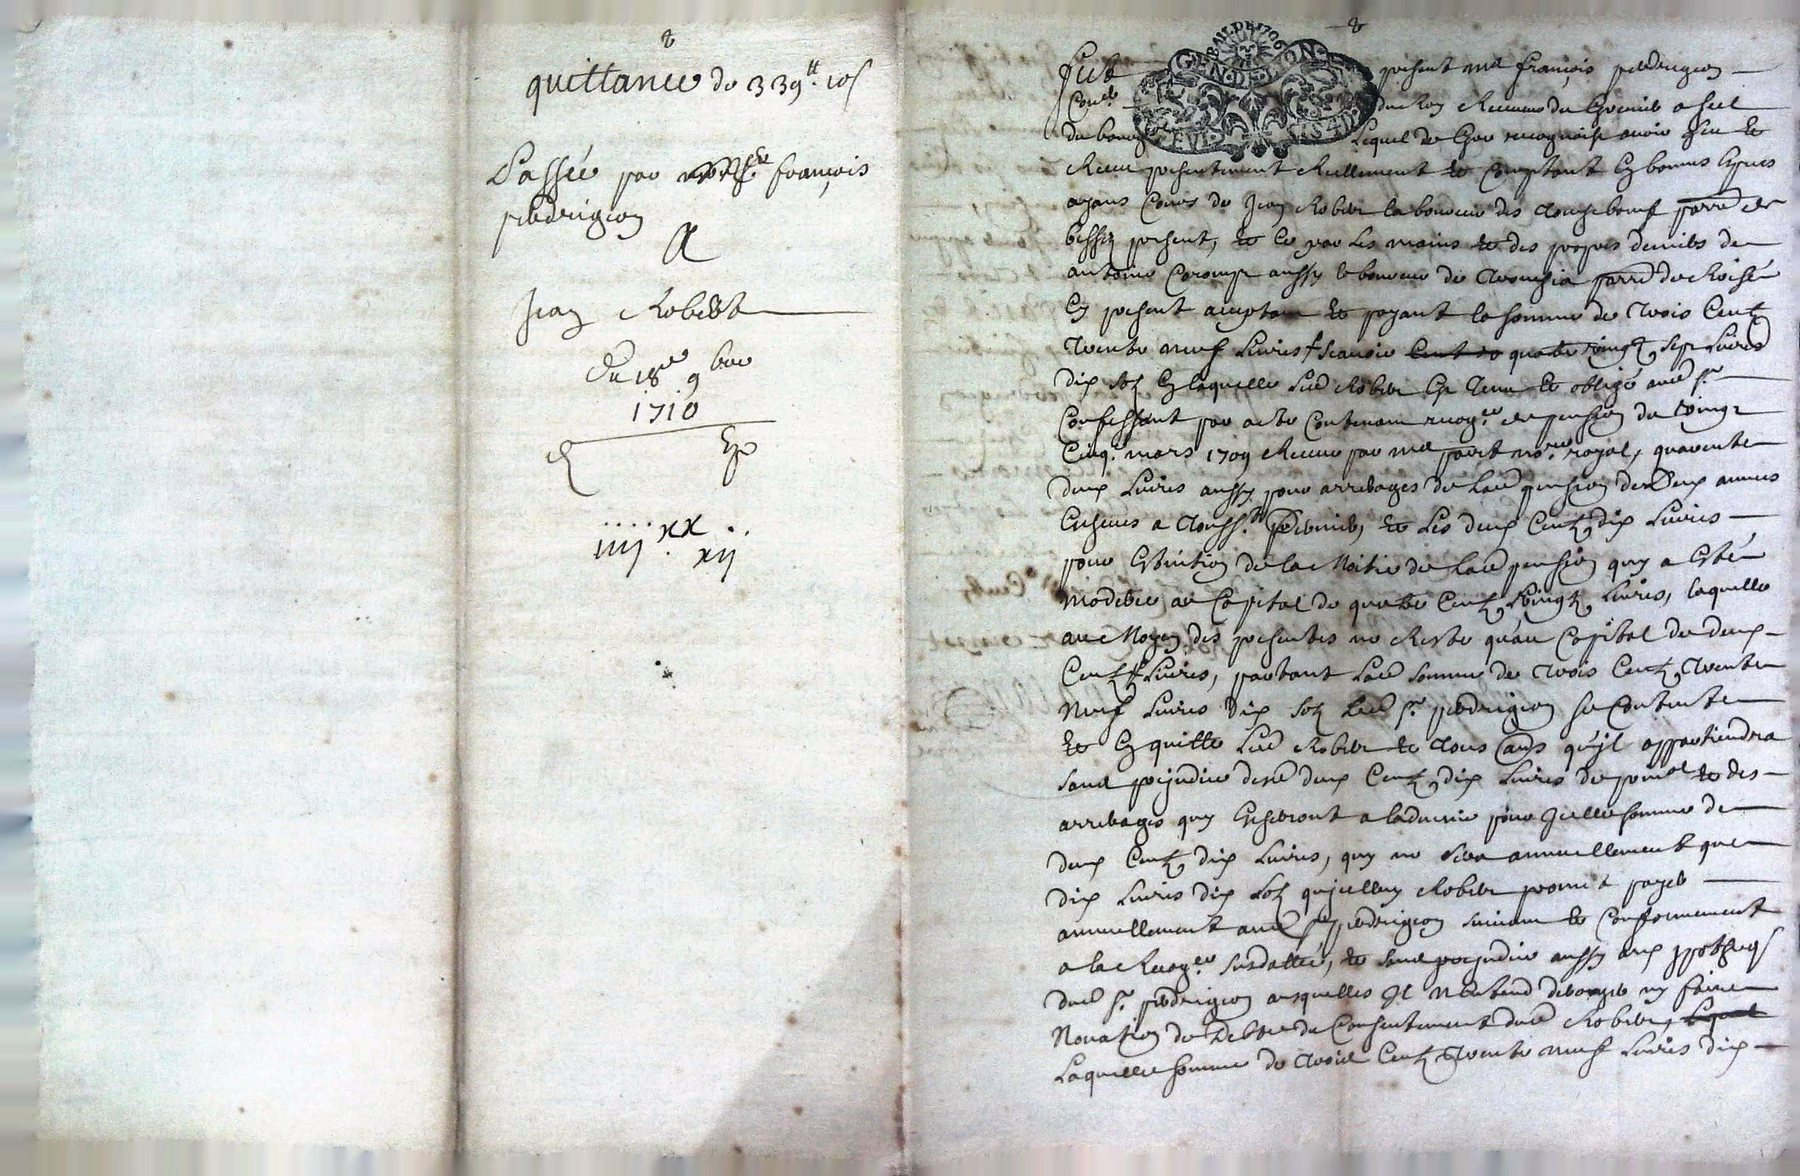 quittance de 339ᵗᵗ 10ſ
Passée par françois
pedrigion
A
Jean Robert
Du 18ᵉ 9bre
1710
Exp
iiii xx xii
Fut present mᵉ françois pedrigion
Conᵉʳ du Roy Receveur du
du bourg Lequel de gré recognoist avoir heu et
Receu presentement Reellement et Comptant En bonnes Especes
ayans Cours de Jean Robert laboureur des parr
present, et ce par les mains et des propres deniers de
antoine aussy laboureur de parr de
En present acceptant et payant la somme de Trois Centz
Trente neuf Livres scavoir cent quatre vingtz sept Livres
dix solz En laquelle Led Robert Est Tenu et obligé aud sʳ
Confessant par acte Contenant recogᶜᵉ de pension du vingt
Cinqᵉ mars 1709 Receue par mᵉ noʳᵉ royal, quarente
deux Livres aussy pour arrerages de Lad pension de deux annees
Escheues a Toussᵗˢ derniers, et Les deux Centz dix Livres
pour Extinction de la Moitie de Lad pension quy a Esté
moderee au Capital de quatre Centz vingtz Livres, laquelle
au Moyen des presentes ne Reste qu'au Capital de deux
Centz Livres, partant Lad somme de Trois Centz Trente
Neuf Livres dix solz Led sʳ pedrigion se Contente
et En quitte Led Robert et Tous autres qu'il appartiendra
sans prejudice desd deux Centz dix Livres de prinal et des
arrerages quy Escheront a ladvenir pour Jcelle somme de
deux Centz dix Livres, quy ne sera annuellement que
dix Livres dix solz qujcelluy Robert promet payer
annuellement aud sʳ pedrigion suivant et Conformement
a la Recogᶜᵉ susdattée, et sans prejudice aussy aux ypotheqs
dud sʳ pedrigion ausquelles Jl N'Entend deroger ny faire
Novation de Debte du Consentement dud Robert,
Laquelle somme de Trois Centz Trente neuf Livres dix